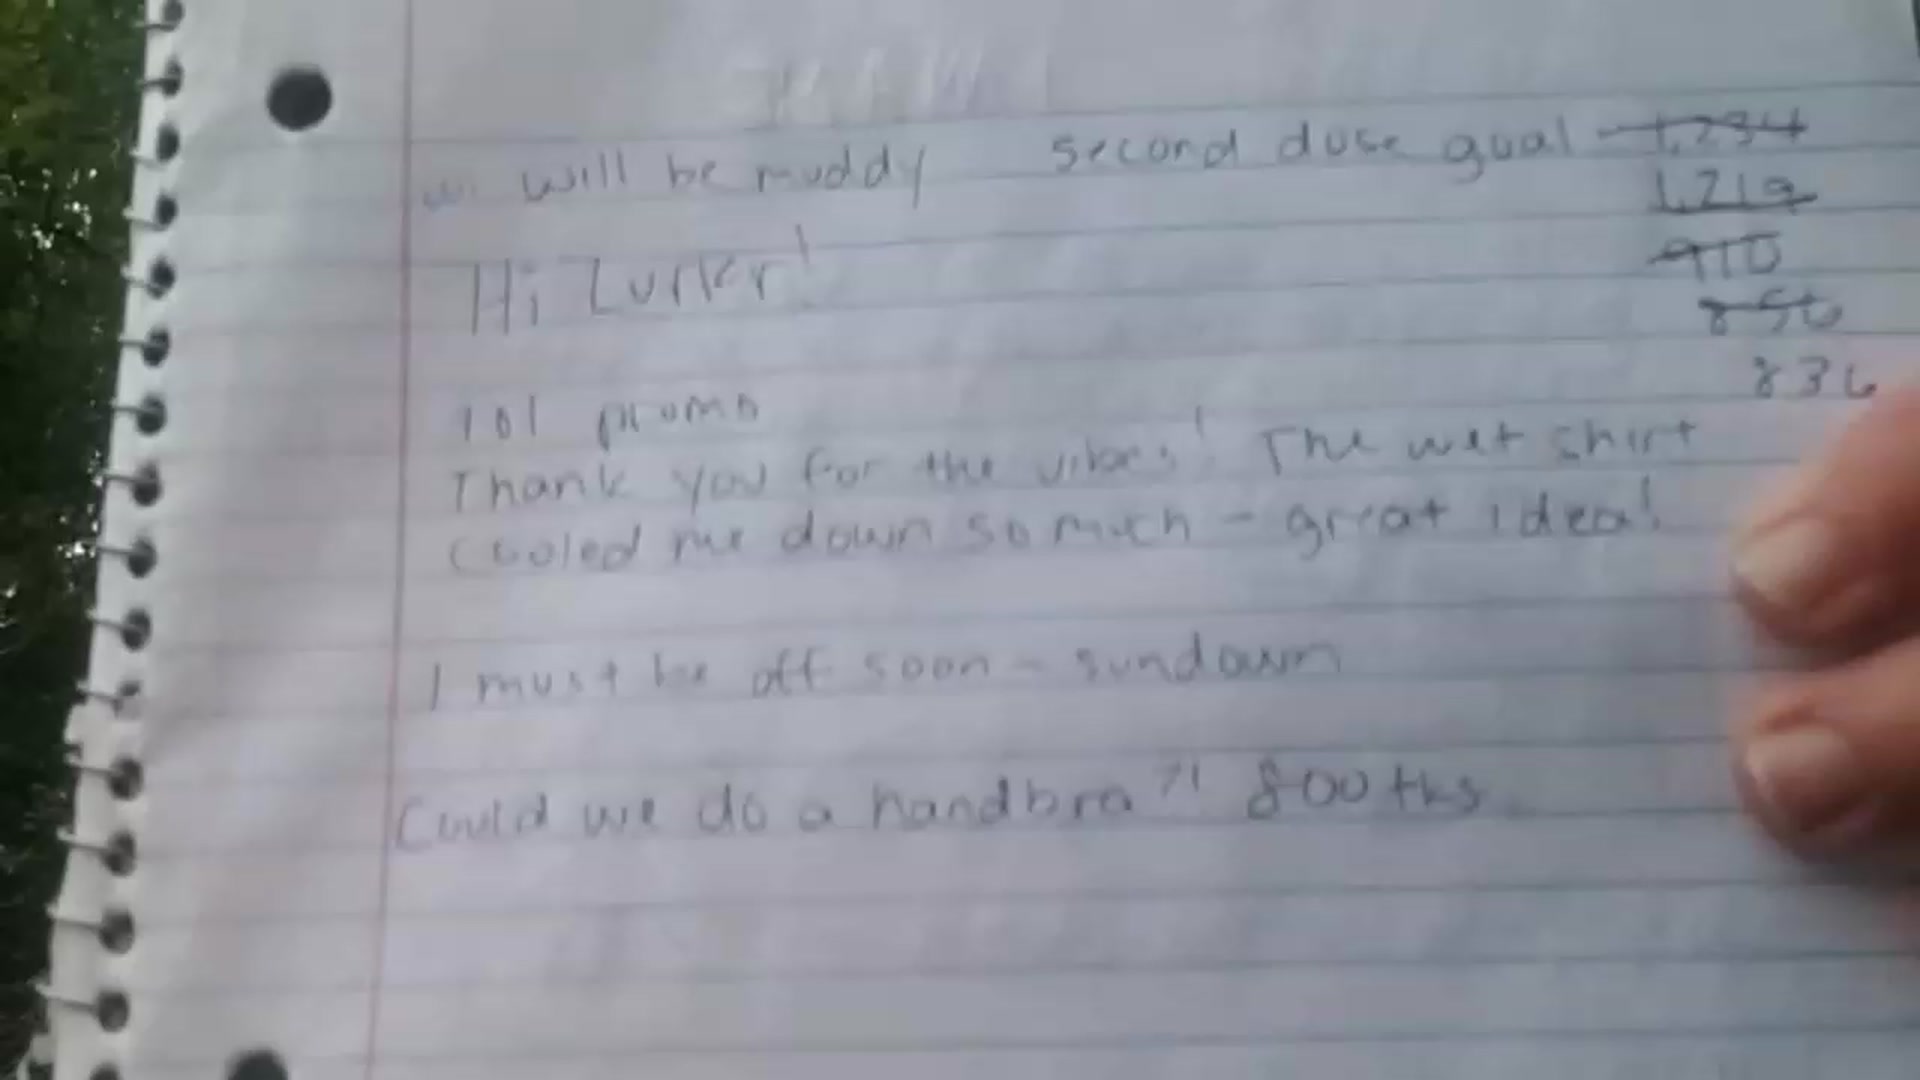 will be muddy second duse goal 1,234
1,219
910
856
836
Hi Lurkr!
101 promo
Thank you for the vibes! The wet shirt
cooled me down so much - great idea!
I must be off soon - sundown
Could we do a handbra?! 800 tks